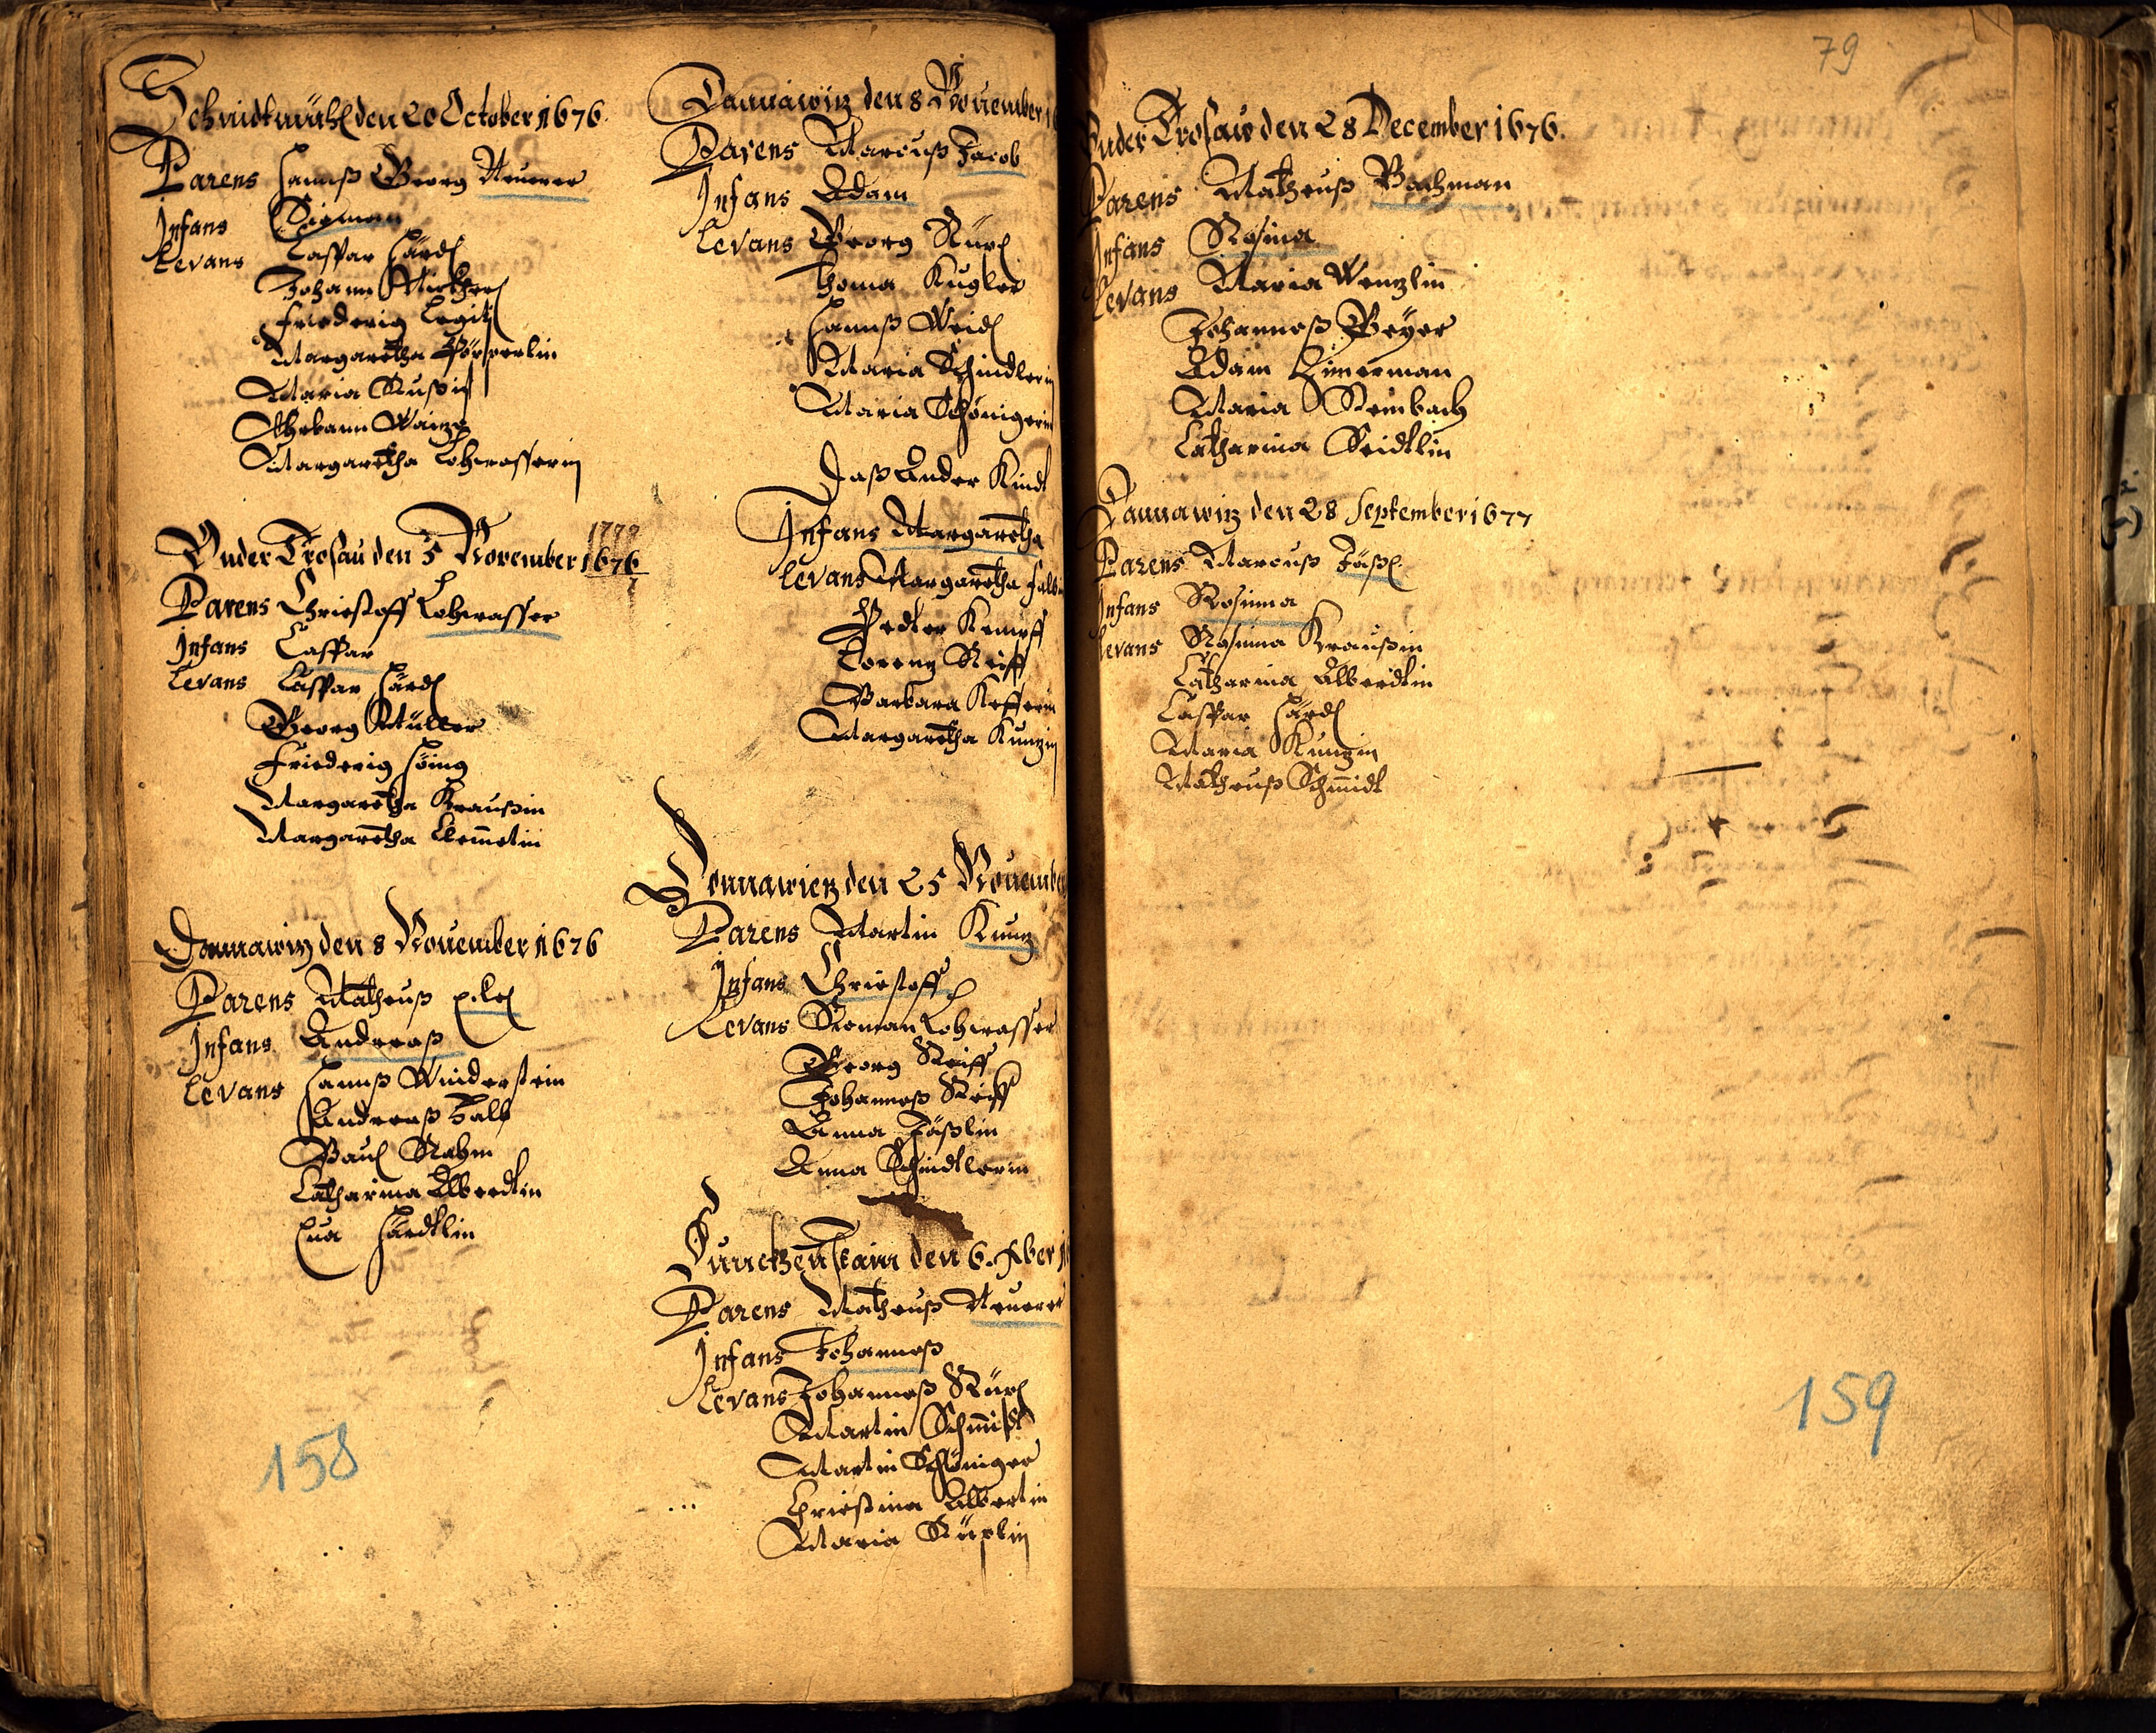 Schmidtmühl den 20 October 1676
Parens Hannß Georg Neuerer
Infans Sieman
Levans Caspar Härdl
Johann
Friederig
Margaretha
Maria Rußin
Margaretha Lohwasserin
Under Trosau den 5 November 1676
Parens Christoff Lohwasser
Infans Caspar
Levans Caspar Härdl
Georg Müller
Friederig Höing
Margaretha Kraußin
Margaretha Clemetin
Dannawitz den 8 November 1676
Parens Matheuß
Infans Andreaß
Levans Hannß Winderstein
Andreaß Falb
Paul Rahm
Catharina Albredtin
Eva Härdtlin
158
Dannawitz den 8 November
Parens Marcuß Jacob
Infans Adam
Levans Georg
Thoma Kugler
Hannß Weidl
Maria Schindlerin
Maria Schönigerin
Daß Ander Kindt
Infans Margaretha
Levans Margaretha
Kempff
Lorentz Reiff
Barbara
Margaretha Kuntzin
Donnawietz den 25 November
Parens Martin Kuntz
Infans Christoff
Levans Roman Lohwasser
Georg Reiff
Johanneß Reiff
Anna Fäßlin
Anna Schindtlerin
den 6. Xber
Parens Matheuß Neuerer
Infans Johanneß
Levans Johanneß
Martin Schmidt
Martin Schöniger
Christina Albertin
Maria
79
Under Trosau den 28 December 1676.
Parens Matheuß Bachman
Infans Rosina
Levans Maria Wentzlin
Johanneß Beyer
Adam Zimerman
Maria Steinbach
Catharina Seidtlin
Dannawitz den 28 September 1677
Parens Marcuß Fäßl
Infans Rosinna
Levans Rosinna Kraußin
Catharina Albredtin
Caspar Härdl
Maria Kuntzin
Matheuß Schmidt
159